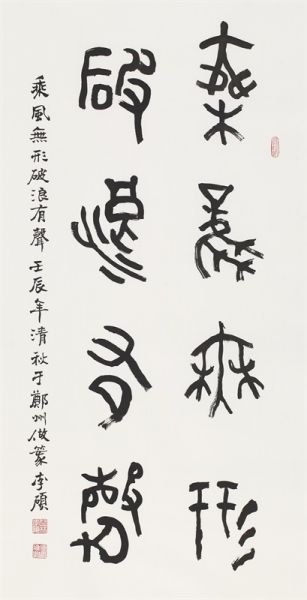 乘風無形
破浪有聲
乘風無形破浪有聲壬辰年清秋于鄭州做篆李碩